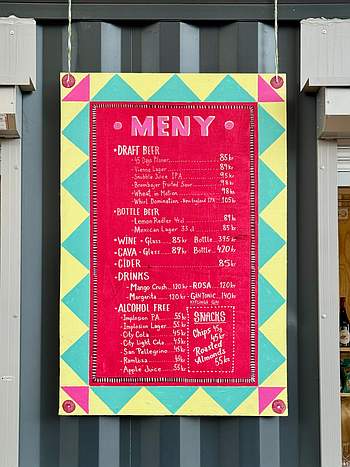 • MENY •
• DRAFT BEER
- 45 Days Pilsner 85kr
- Vienna Lager 89kr
- Snubble Juice IPA 95kr
- Brambær Fruited Sour 98kr
- Wheat in Motion 98kr
- Whirl Domination - New England IPA - 105kr
• BOTTLE BEER
- Lemon Radler 4% cl 89kr
- Mexican Lager 33 cl 85kr
• WINE - Glass 85kr Bottle 395kr
• CAVA - Glass 89kr Bottle 420kr
• CIDER 85kr
• DRINKS
- Mango Crush 120kr - ROSA 120kr
- Margarita 120kr - GIN TONIC 140kr
• ALCOHOL FREE
- Implosion PA 55kr
- Implosion Lager 55kr
- City Cola 45kr
- City Light Cola 45kr
- San Pellegrino 45kr
- Ramlösa 40kr
- Apple Juice 55kr
SNACKS
Chips 45g
45kr
Roasted
Almonds
55kr